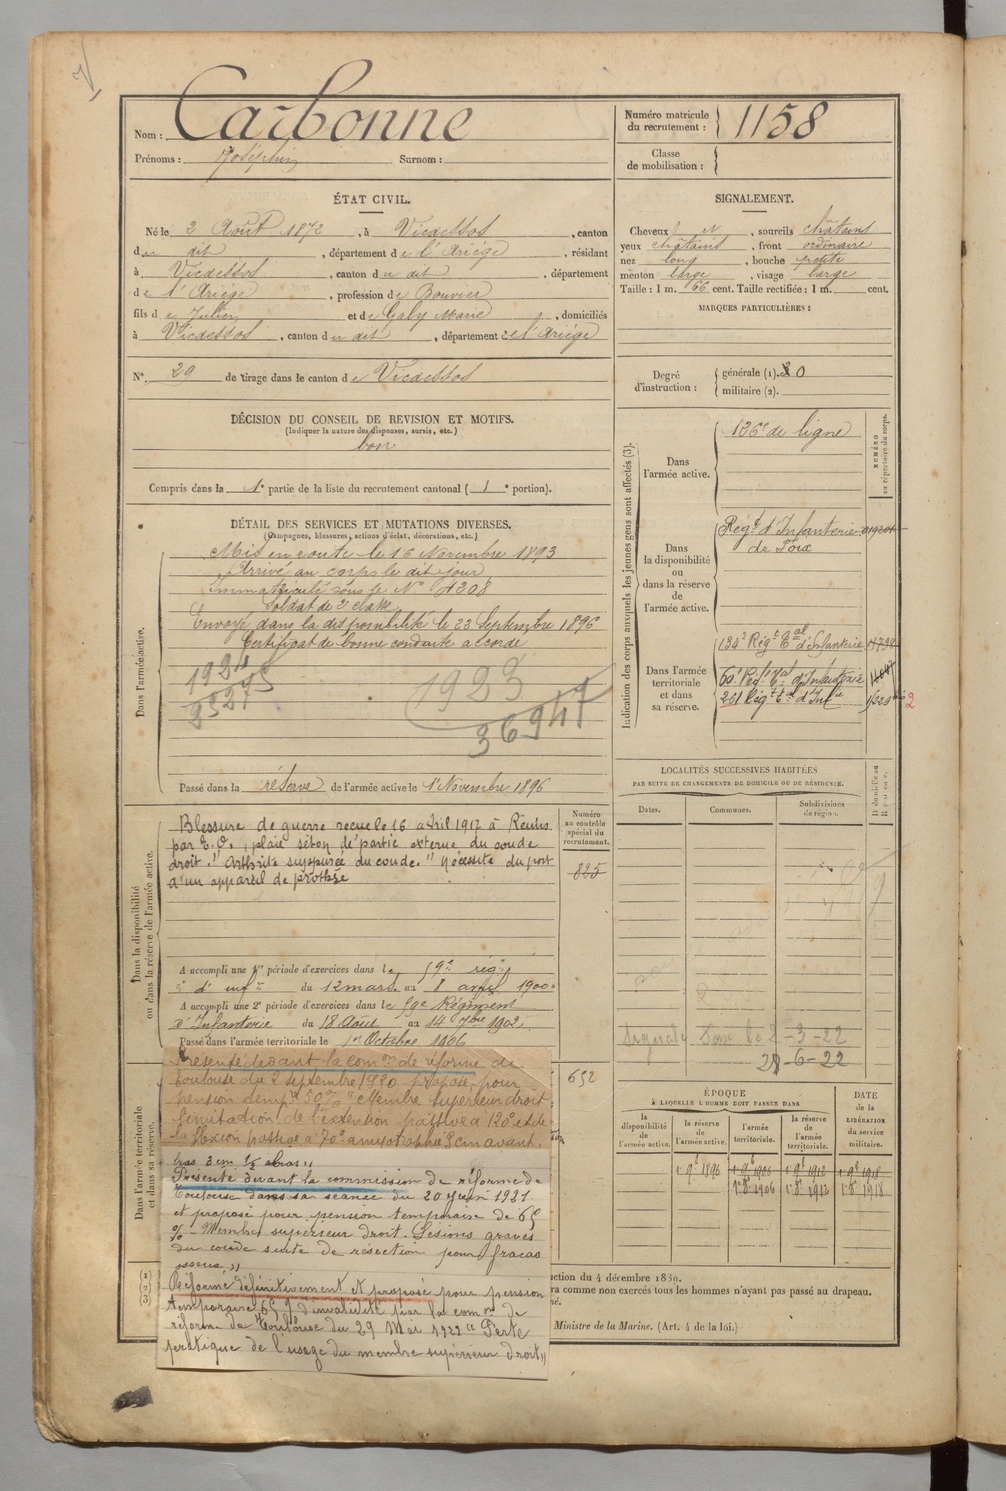 Nom : Carbonne
Prénoms : Joséphin Surnom :
Numéro matricule
du recrutement : 1158
Classe
de mobilisation :
ÉTAT CIVIL.
Né le 2 Août 1872, à Vicdessos, canton
du dit, département de l'Ariège, résidant
à Vicdessos, canton du dit, département
de l'Ariège, profession de Bouvier
fils de Julien et de Galy Marie, domiciliés
à Vicdessos, canton du dit, département de l'Ariège
N°. 29 de tirage dans le canton de Vicdessos
SIGNALEMENT.
Cheveux et, sourcils châtains
yeux châtains, front ordinaire
nez long, bouche petite
menton large, visage large
Taille : 1 m. 66 cent. Taille rectifiée : 1 m. cent.
MARQUES PARTICULIÈRES :
Degré
d'instruction :
générale (1). 0
militaire (2).
DÉCISION DU CONSEIL DE REVISION ET MOTIFS.
(Indiquer la nature des dispenses, sursis, etc.)
bon
Compris dans la 1e partie de la liste du recrutement cantonal (1e portion).
DÉTAIL DES SERVICES ET MUTATIONS DIVERSES.
(Campagnes, blessures, actions d'éclat, décorations, etc.)
Dans l'armée active.
Mis en route le 16 Novembre 1893
Arrivé au corps le dit jour
Immatriculé sous le N° 4208
Soldat de 2e classe
Envoyé dans la disponibilité le 23 Septembre 1896
Certificat de bonne conduite accordé
1924
1923
36947
Passé dans la réserve de l'armée active le 1er Novembre 1896
Indication des corps auxquels les jeunes gens sont affectés (3).
NUMÉRO
au répertoire du corps.
Dans
l'armée active.
126e de ligne
Dans
la disponibilité
ou
dans la réserve
de
l'armée active.
Régt d'Infanterie
de Foix
Dans l'armée
territoriale
et dans
sa réserve.
134e Régt Eal d'Infanterie
60e Régt Eal d'Infanterie
201 Régt Eal d'Infie
Dans la disponibilité
ou dans la réserve de l'armée active.
Numéro
au contrôle
spécial du
recrutement.
825
Blessure de guerre reçue le 16 avril 1917 à Reims
par E.O., plaie séton de partie externe du coude
droit. "Arthrite suppurée du coude." Nécessité du port
d'un appareil de prothèse
A accompli une 1re période d'exercices dans le 59e régt
d'infie du 12 mars au 8 avril 1900.
A accompli une 2e période d'exercices dans le 59e Régiment
d'Infanterie du 18 Août au 14 7bre 1902.
Passé dans l'armée territoriale le 1er Octobre 1906
LOCALITÉS SUCCESSIVES HABITÉES
PAR SUITE DE CHANGEMENTS DE DOMICILE OU DE RÉSIDENCE.
Dates.
Communes.
Subdivisions
de région.
2-3-22
21-6-22
Dans l'armée territoriale
et dans sa réserve.
652
Présenté devant la comon de réforme de
Toulouse du 2 septembre 1920 proposé pour
pension tempre 50% "Membre supérieur droit :
limitation de l'extension passive à 120° et de
la flexion passive à 70° amyotrophie 3 cm avant-
bras 3 cm 1/2 au bras"
Présenté devant la commission de réforme de
Toulouse dans sa séance du 20 juin 1921
et proposé pour pension temporaire de 65
% - Membre supérieur droit. Lésions graves
du coude suite de résection pour fracas
osseux"
Réformé définitivement et proposé pour pension
temporaire 65% d'invalidité par la comon de
réforme de Toulouse du 29 Mai 1922 "Perte
pratique de l'usage du membre supérieur droit"
ÉPOQUE
À LAQUELLE L'HOMME DOIT PASSER DANS
DATE
de la
LIBÉRATION
du service
militaire.
la
disponibilité
de
l'armée active.
la
réserve de
l'armée active.
l'armée
territoriale.
la réserve
de
l'armée
territoriale.
1er 9bre 1896
1er 9bre 1906
1er 9bre 1912
1er 9bre 1918
1er 8bre 1906
1er 8bre 1912
1er 8bre 1918
(1)
(2)
(3)
ction du 4 décembre 1889.
ra comme non exercés tous les hommes n'ayant pas passé au drapeau.
Ministre de la Marine. (Art. 4 de la loi.)